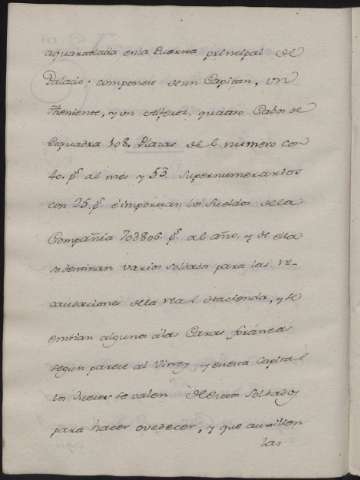 aquartelada en la Puerta principal de
Palacio, componese de un Capitan, Vn
Theniente, y un Alferez, quatro Cabos de
Esquadra 108. Plazas de el numero con
40. p.^s al mes y 53. supernumerarios
con 25. p.^s è importan los sueldos de la
Compañia 70d806. p.^s al año, y de ella
se destinan varios soldados para las re-
caudaciones de la real Hacienda, y se
embian algunos a las Casas foraneas
segun parece al Virrey, y en esta Capital
los Jueces se valen de dichos soldados
para hacer ovedecer, y que auxilien
las